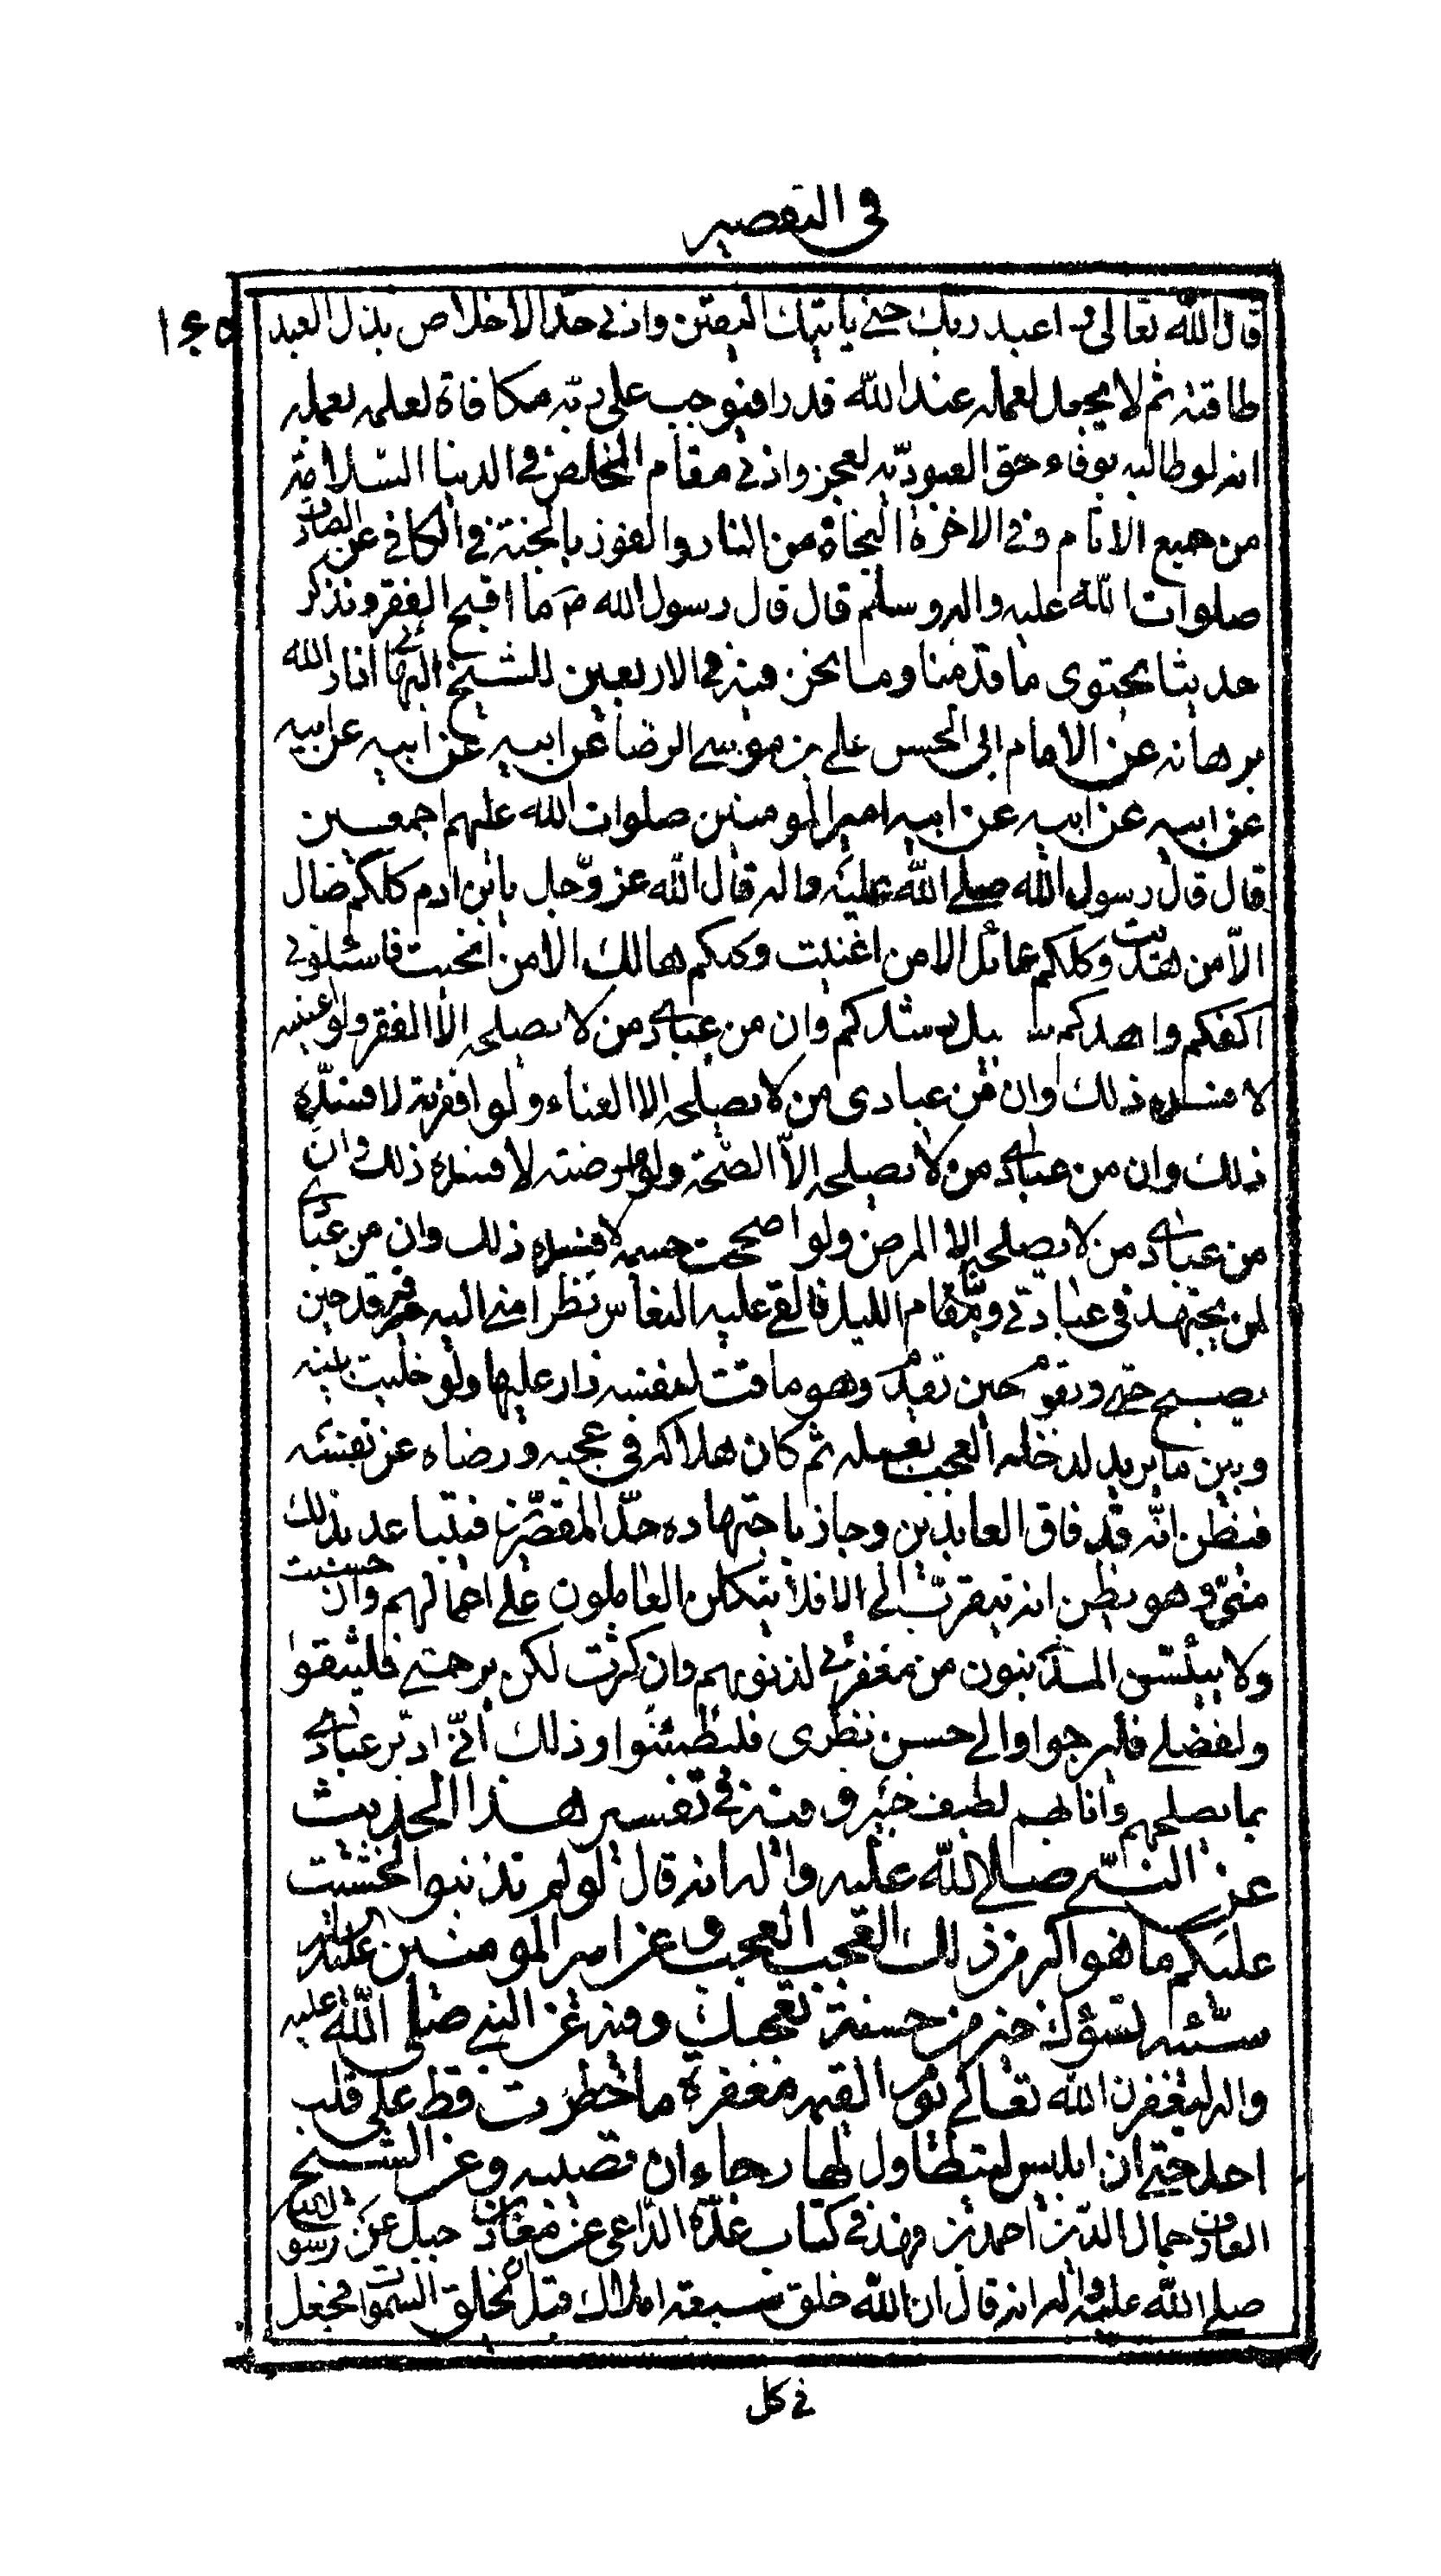 فى التقصير
١٤٥
قال الله تعالى و اعبد ربك حتى ياتيك اليقين وادنى حدّ الاخلاص بذل العبد
طاقته ثم لا يجعل لعمله عند الله قدرا فيوجب على ربّه مكافاة لعلمه بعمله
انه لو طالبه بوفاء حق العبوديّه لعجز وادنى مقام المخلص فى الدنيا السّلامة
من جميع الاثام وفى الاخرة النجاة من النار والفوز بالجنة فى الكافى عن الصادق
صلوات الله عليه واله وسلم قال قال رسول الله ص ما اقبح الفقر ونذكر
حديثا يحتوى ما قدّمنا وما نحن فيه فى الاربعين للشيخ البهائى انار الله
برهانه عن الامام ابى الحسن على بن موسى الرضا عن ابيه عن ابيه عن ابيه
عن ابيه عن ابيه عن ابيه امير المومنين صلوات الله عليهم اجمعين
قال قال رسول الله صلى الله عليه واله قال الله عز وجل يابن ادم كلكم ضال
الّا من هديت وكلكم عائل الا من اغنيت وكلكم هالك الا من انجيت فاسئلونى
اكفكم واهدكم سبيل رشدكم وان من عبادى من لا يصلحه الا الفقر ولو اغنيته
لافسده ذلك وان من عبادى من لا يصلحه الا الغناء ولو افقرته لافسده
ذلك وان من عبادى من لا يصلحه الّا الصّحة ولو امرضته لافسده ذلك وان
من عبادى من لا يصلحه الا المرض ولو اصححت جسمه لافسده ذلك وان من عبادى
لمن يجتهد فى عبادتى وقيام الليل فالقى عليه النعاس نظرا منى اليه فيرقد حين
يصبح حتى ويقوم حين يقوم وهو ماقت لنفسه زار عليها ولو خليت بينه
وبين ما يريد لدخله العجب بعمله ثم كان هلاكه فى عجبه ورضاه عن نفسه
فيظن انّه قد فاق العابدين وجاز باجتهاده حدّ المقصّرين فيتباعد بذلك
منّى وهو يظن انه يتقرّب الى الا فلا يتكلن العاملون على اعمالهم وان حسنت
ولا ييئسن المذنبون من مغفرتى لذنوبهم وان كثرت لكن برحمتى فليثقوا
ولفضلى فليرجوا والى حسن نظرى فليطمئنوا وذلك انّى ادبّر عبادى
بما يصلحهم وانا لهم لطيف خبير و فيه فى تفسير هذا الحديث
عن النبى صلى الله عليه واله انه قال لو لم تذنبوا لخشيت
عليكم ما هو اكبر من ذلك العجب العجب و عن امير المومنين عليه السلام
سيّئه تسؤك خير من حسنة تعجبك وفيه عن النبى صلى الله عليه
واله ليغفرن الله تعالى يوم القيمه مغفرة ما خطرت قط على قلب
احد حتى ان ابليس ليتطاول لها رجاء ان تصيبه وعن الشيخ
العارف جمال الدّين احمد بن فهد فى كتاب عدّة الدّاعى عن معاذ بن جبل عن رسول الله
صلى الله عليه واله انه قال ان الله خلق سبعة املاك قبل ان يخلق السموات فجعل
فى كل